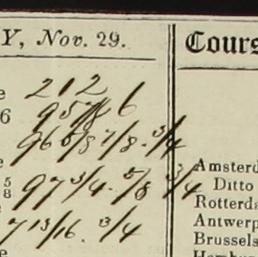 Y, Nov. 29.
e 212
6 95 7/8 6
96 5/8 7/8 . 3/4
e
5/8 97 3/4 . 5/8 3/4
7 13/16 . 3/4
Cours
Amsterd
Ditto
Rotterda
Antwerp
Brussels